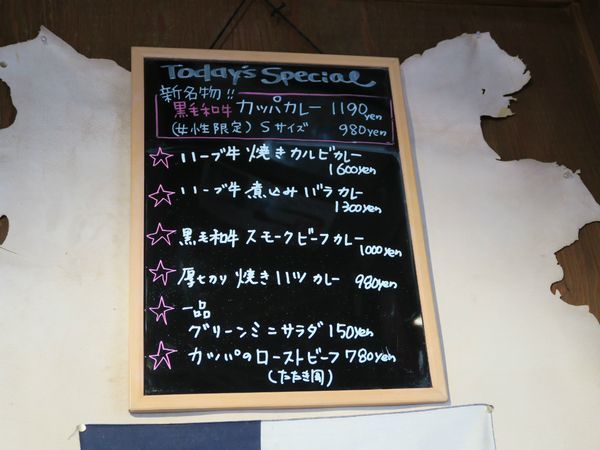 Today's Special
新名物!!
黒毛和牛 カッパカレー 1190yen
(女性限定) Sサイズ 980yen
☆ハーブ牛 焼きカルビカレー
1600yen
☆ハーブ牛 煮込みバラカレー
1300yen
☆黒毛和牛 スモークビーフカレー
1000yen
☆厚切り 焼きハツ カレー 980yen
☆一品
グリーンミニサラダ 150yen
☆カッパのローストビーフ 780yen
(たたき風)